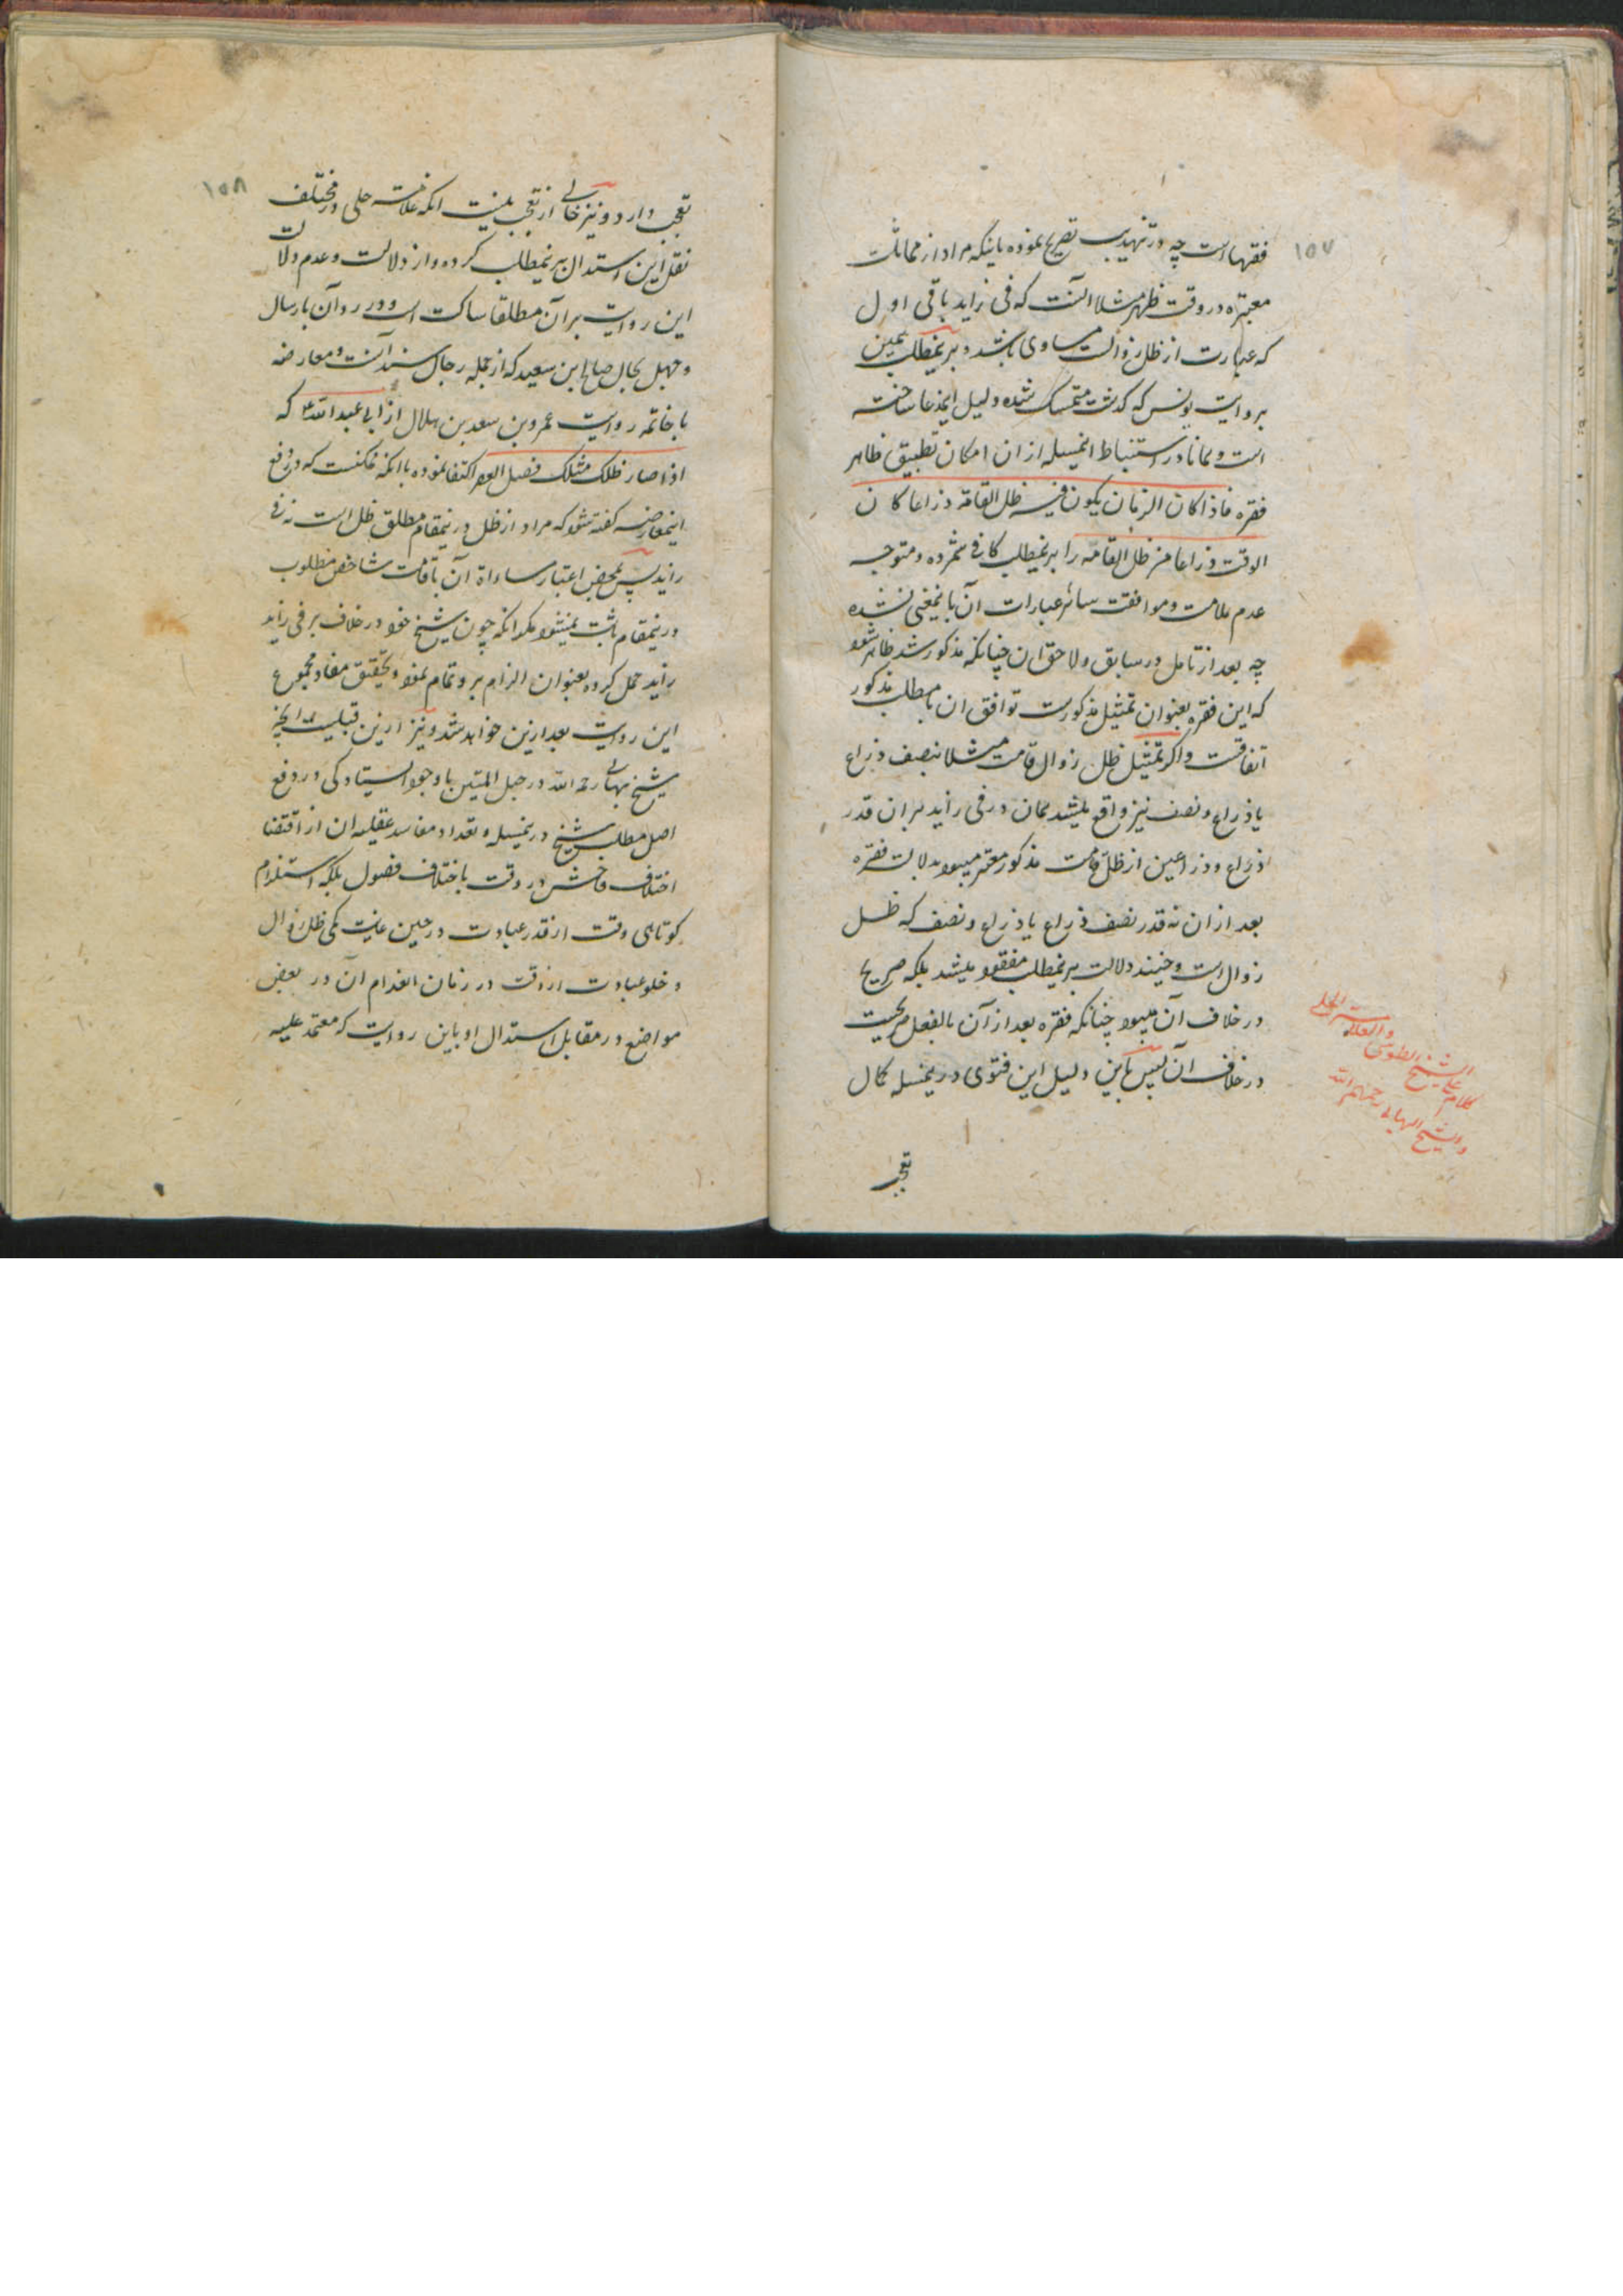 ۱۵۷
فقهاست چه در تهذیب تصریح نموده باینکه مراد از مماثلت
معتبره در وقت ظهر مثلا آنست که فی زاید باقی اول
که عبارت از ظل زوالست مساوی باشد و بر نمطلب همین
بروایت یونس که گذشت متمسک شده دلیل اینمدعا ساخته
است و همانا در استنباط اینمسله از ان امکان تطبیق ظاهر
فقره فاذا کان الزمان یکون فیه ظل القامة ذراعا کان
الوقت ذراعا من ظل القامة را بر نمطلب کافی شمرده و متوجه
عدم ملامت و موافقت سائر عبارات آن بانمعنی نشده
چه بعد از تامل در سابق و لاحق ان چنانکه مذکور شد ظاهر شود
که این فقره بعنوان تمثیل مذکورست توافق ان با مطلب مذکور
اتفاقیست و اگر تمثیل ظل زوال قامت مثلا بنصف ذراع
یا ذراع و نصف نیز واقع میشد همان در فی زاید بر ان قدر
ذراع و ذراعین از ظل قامت مذکور معتبر میبود بدلالت فقره
بعد از ان نه قدر نصف ذراع یا ذراع و نصف که ظل
زوال است و حینئذ دلالت بر نمطلب مفقود میشد بلکه صریح
در خلاف آن میبود چنانکه فقره بعد از آن بالفعل صریحست
در خلاف ان پس باین دلیل این فتوی در نمسله کمال
تعجب
کلام علی الشیخ الطوسی
والعلامه الحلی
والشیخ البهایی رحمهم الله
۱۵۸
تعجب دارد و نیز خالی از تعجب نیست انکه علامه حلی در مختلف
نقل این استدلال بر نمطلب کرده و از دلالت و عدم دلالت
این روایت بر آن مطلقا ساکت است و در رد آن بارسال
و جهل بحال صالح ابن سعید که از جمله رجال سند آنست و معارضه
با خاتمه روایت عمرو بن سعد بن هلال از ابی عبد الله ع که
اذا صار ظلک مثلک فصل العصر اکتفا نموده با انکه ممکنست که در دفع
اینمعارضه گفته شود که مراد از ظل در نمقام مطلق ظل است نه فی
زاید پس بمحض اعتبار مساواة آن با قامت شاخص مطلوب
در نمقام ثابت نمیشود مگر انکه چون شیخ خود در خلاف بر فی زاید
زاید حمل کرده بعنوان الزام بر و تمام نمود و تحقیق مفاد مجموع
این روایت بعد ازین خواهد شد و نیز ازین قبیلست انچه
شیخ بهایی رحمه الله در حبل المتین با وجود ایستادگی در دفع
اصل مطلب شیخ در نمسله و تعداد مفاسد عقلیه ان از اقتضا
اختلاف فاحش در وقت باختلاف فصول بلکه استلزام
کوتاهی وقت از قدر عبادت در حین غایت کمی ظل زوال
و خلو عبادت از وقت در زمان انعدام آن در بعض
مواضع در مقابل استدلال او باین روایت که معتمد علیه